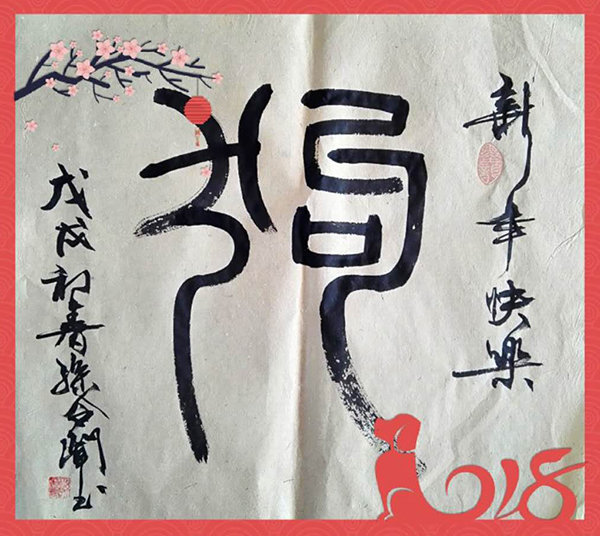 新年快樂
狗
戊戌初春孫书
2018